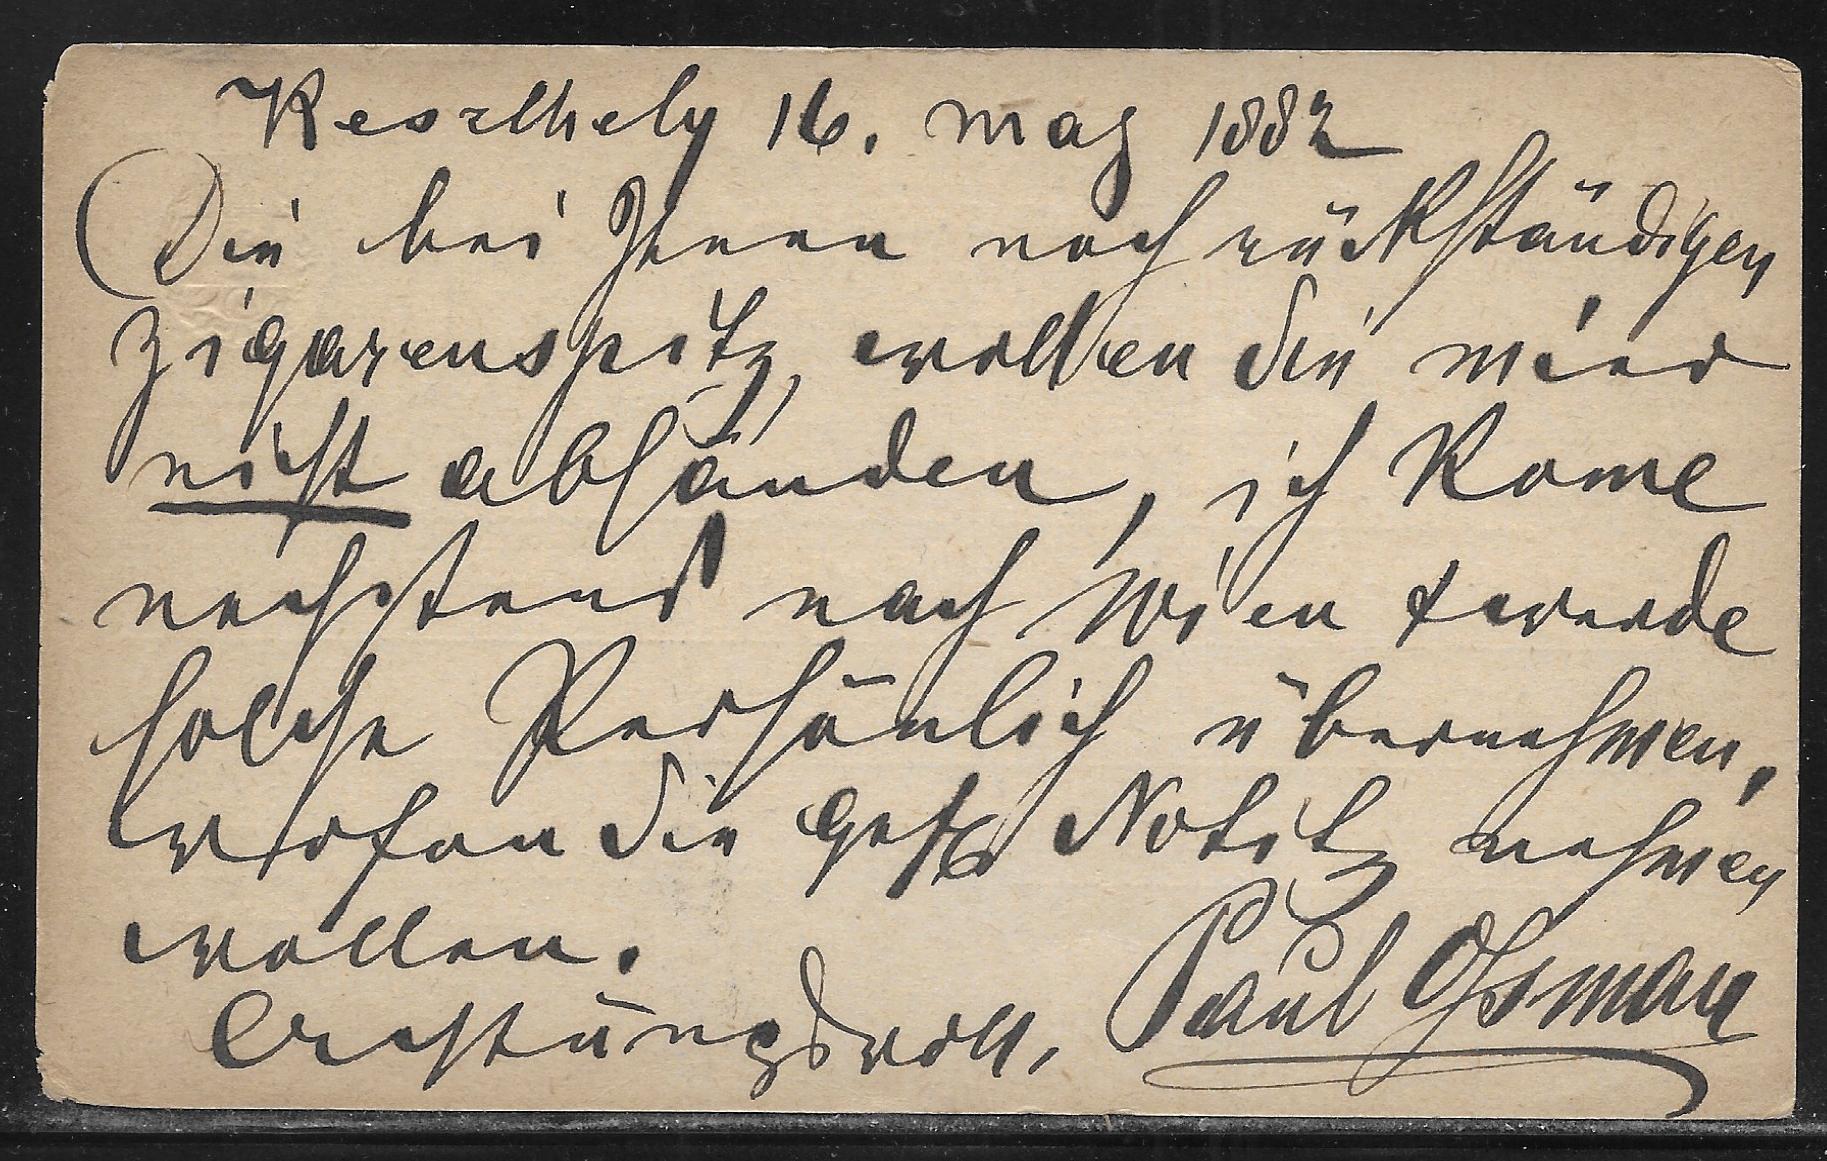 Keszthely 16. May 1882
Die bei Ihnen noch rückständigen
Zigarenspitz, wollen Sie mier
nicht absänden, ich kome
nechstens nach Wien & werde
solche Persönlich übernehmen,
Sie gefl Notitz nehmen
wollen.
Achtungsvoll,
Paul Ossman